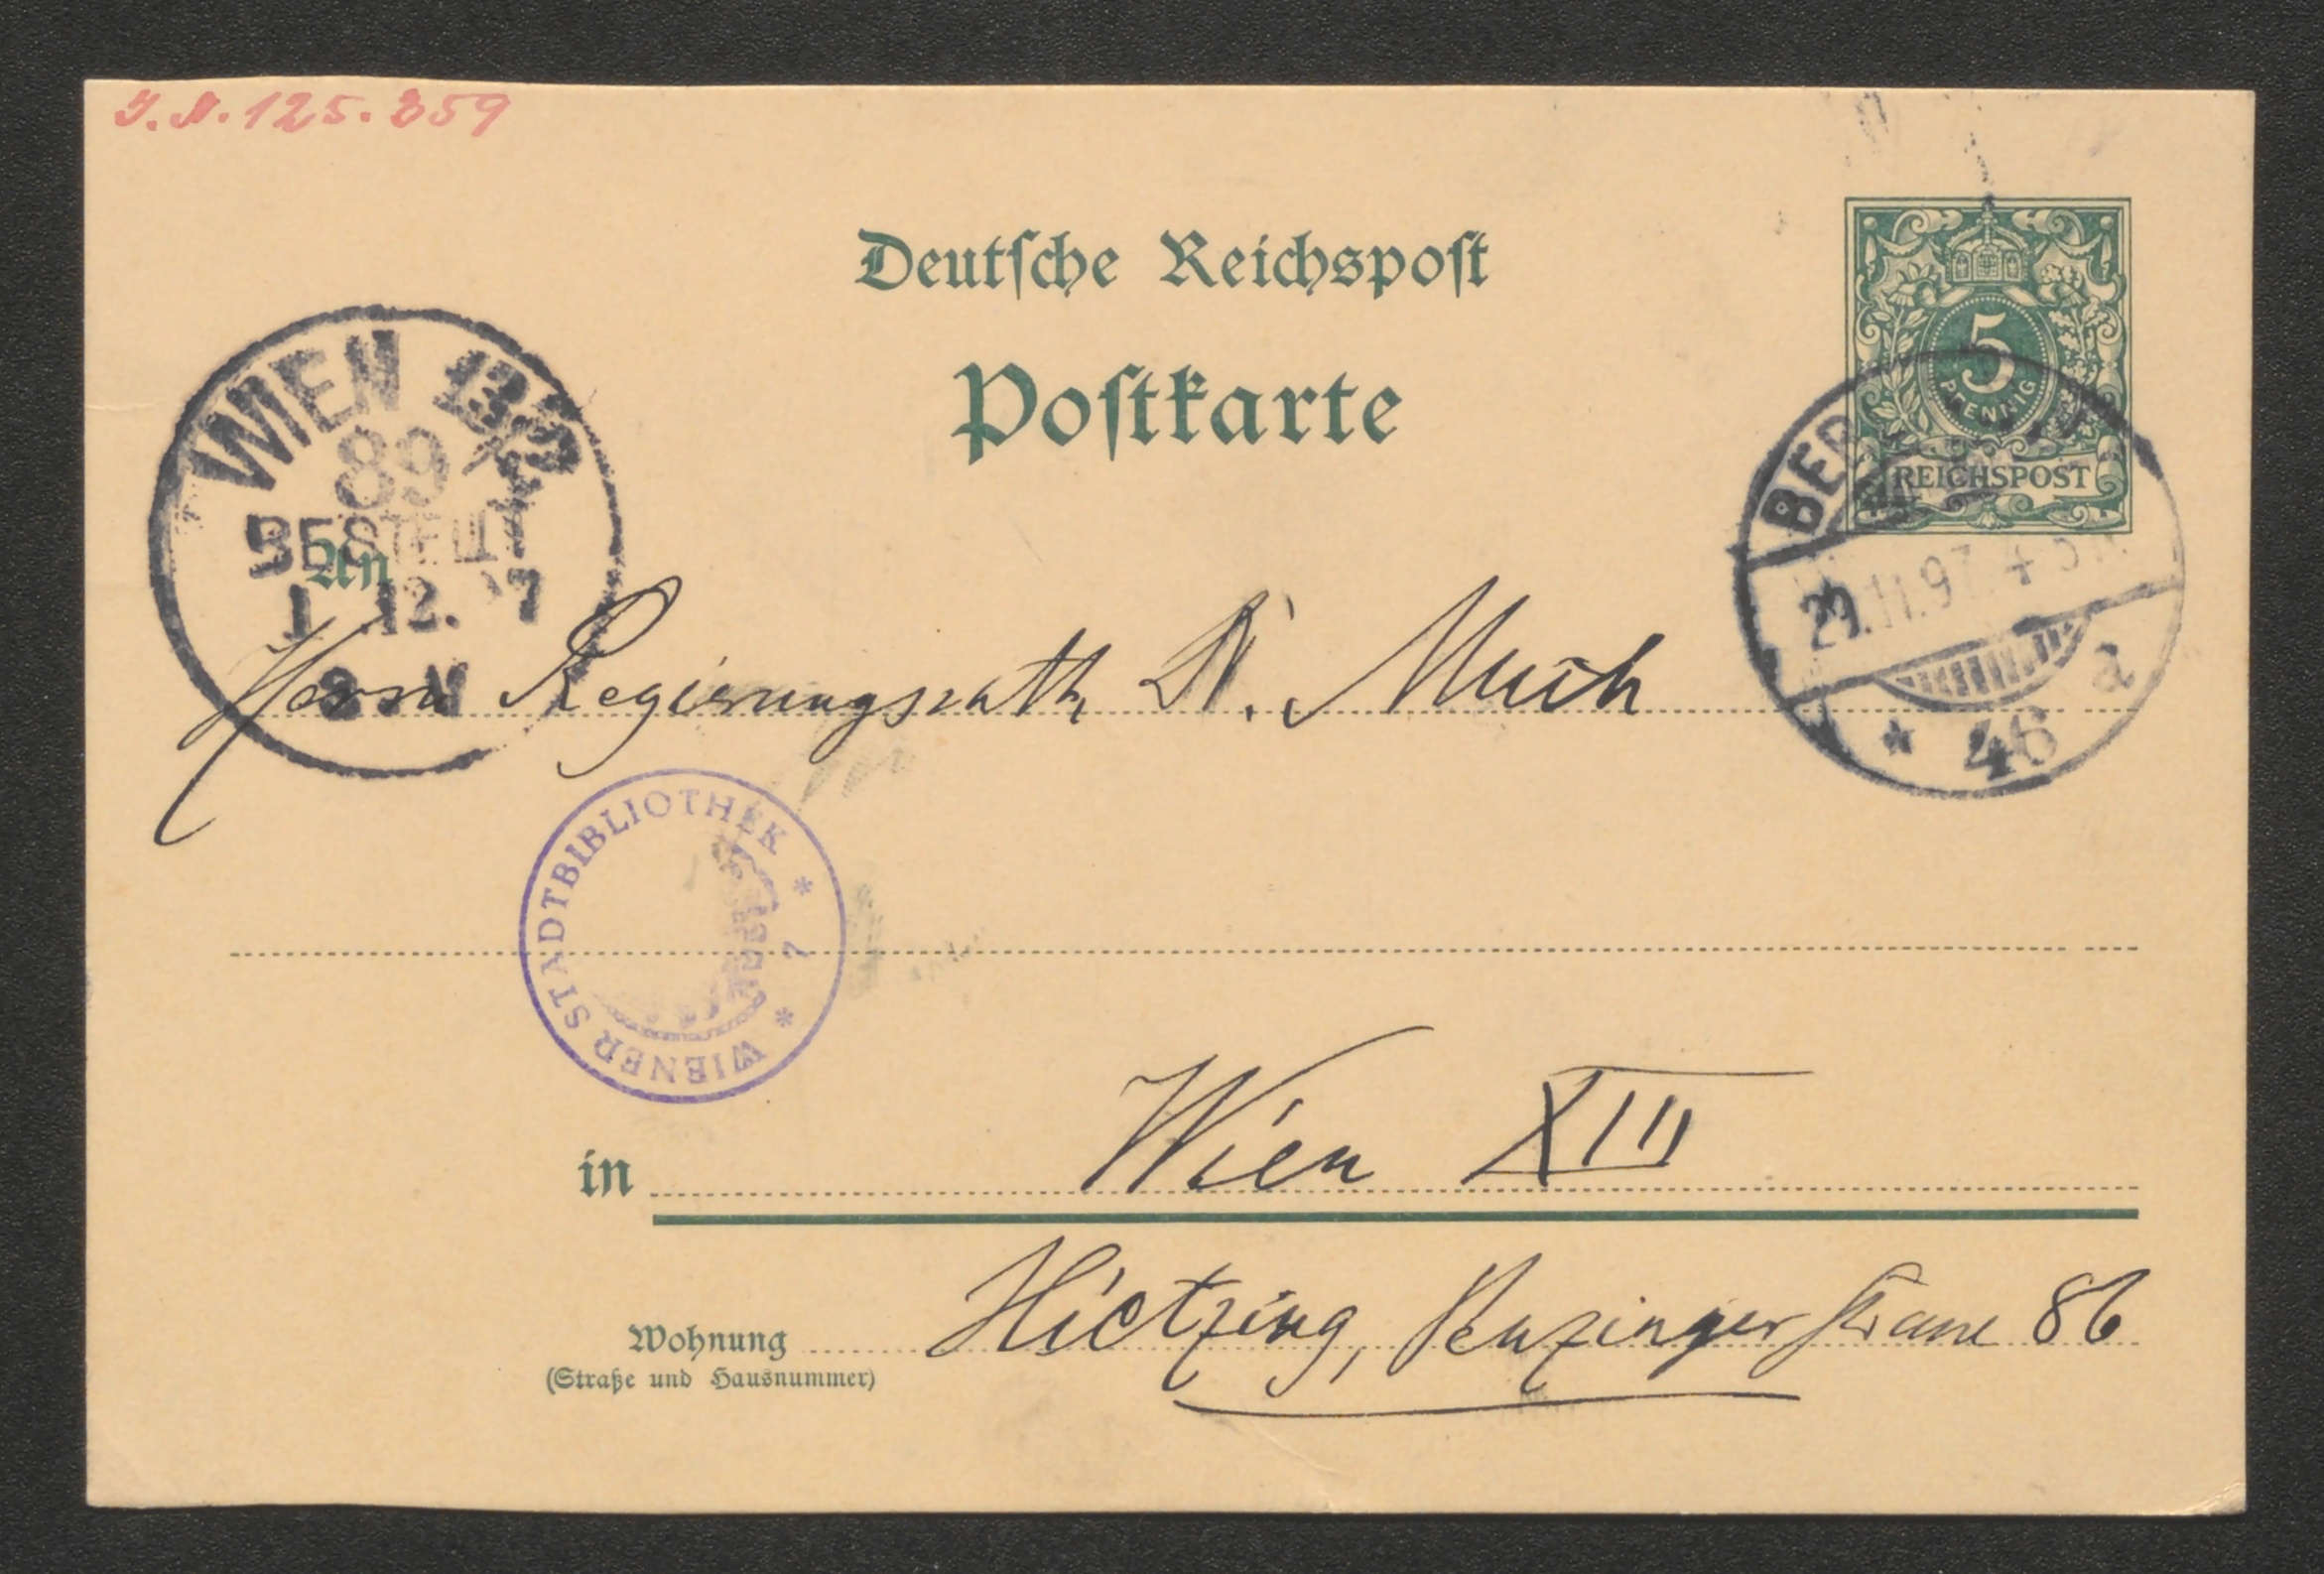 J.N. 125.859
Deutsche Reichspost
Postkarte
5
PFENNIG
REICHSPOST
WIEN 13/9
89
BESTELLT
1. 12. 7
8 V
BERLIN W
29.11.97. 4-5 N.
* 46 a
An
Herrn Regierungsrath Dr. Much
WIENER STADTBIBLIOTHEK * 7 *
in Wien XIII
Wohnung Hietzing, Penzingerstrasse 86
(Straße und Hausnummer)